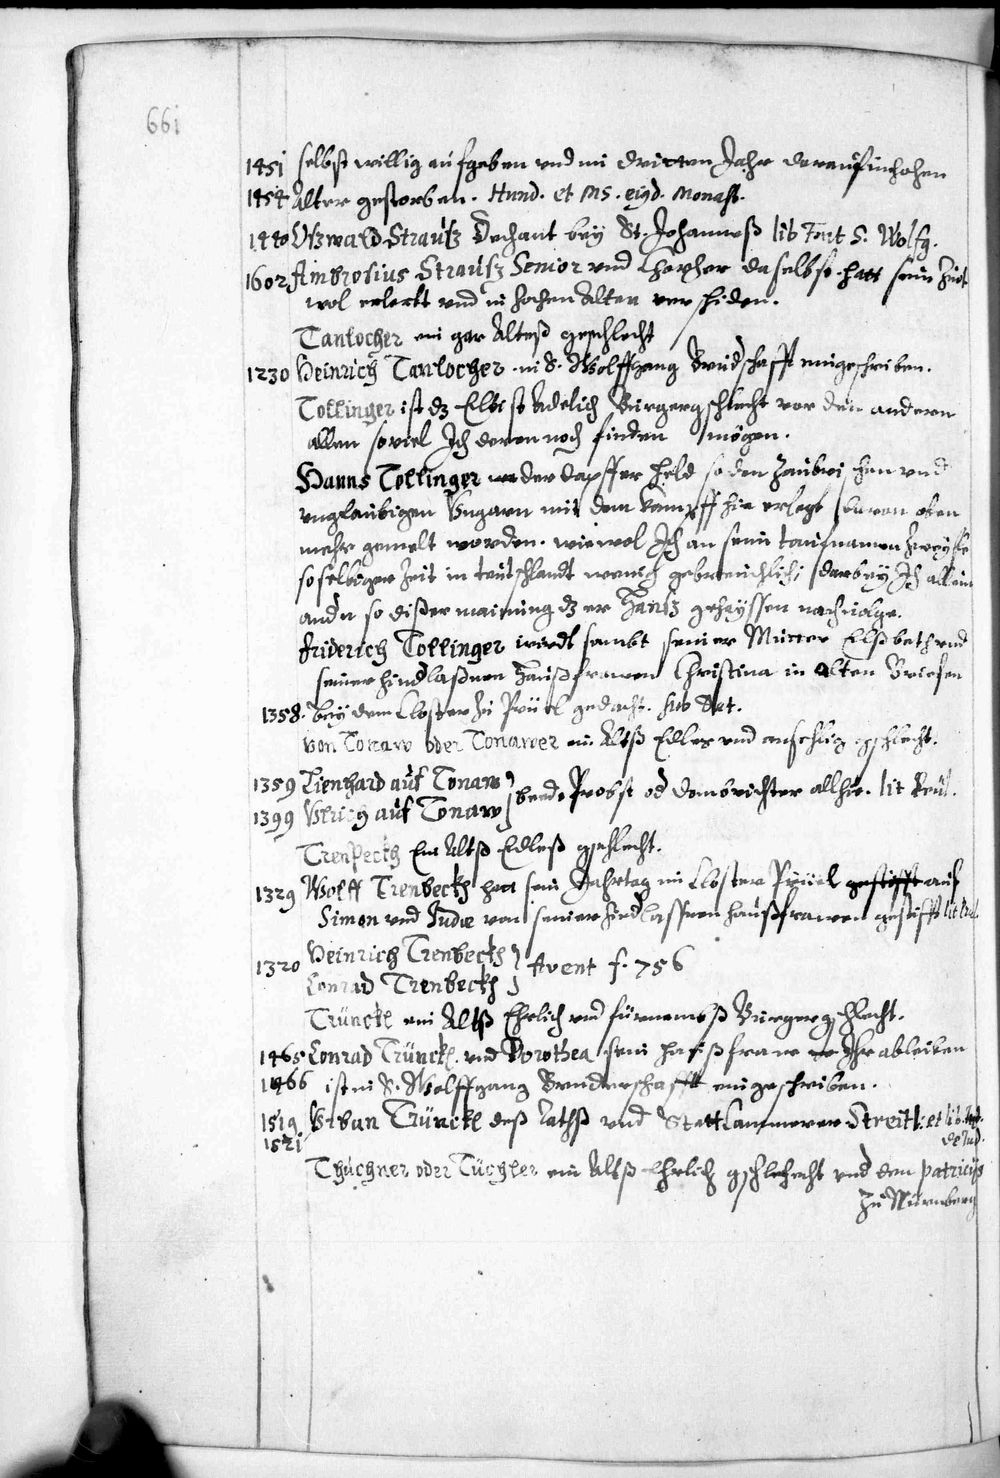 661
1451 selbst willig aufgeben und im dritten Jahr darauf in hohen
1454 Alter gestorben. Hund. et MS. eijd. Monast.
1440 Ußwald Strauß Dechant bey St. Johanneß lib Frat S. Wolfg.
1602 Ambrosius Strauß Senior und Chorherr daselbst hatt sein Zeit
wol erlebt und in hohen Alter verschiden.
Tanlocher ein gar Alteß geschlecht
1230 Heinrich Tanlocher in S. Wolffgang Bruidschafft eingeschriben.
Tollinger ist dz Eltist Adelich Burgergschlecht vor den anderen
allen soviel Ich deren noch finden mögen.
Hanns Tollinger der dapffer held so den Zaubrischen und
unglaubigen Ungarn mit dem Kampff hie erlegt davon oben
mehr gemelt worden. wiewol Ich an sein taufnamen zweyfle
so selbiger Zeit in teutschlandt wenich gebreuchlich, darbey Ich allein
andn so dißer mainung dz er Hanß geheyssen nachvolge.
Friderich Tollinger wirdt sambt seiner Mutter Elßbeth und
seiner hindlaßnen Haußfrawen Christina in alten Briefen
1358. bey dem Closter zu Prüel gedacht. sub Dat.
von Tonaw oder Tonawer ein Altß Edles und ansehlig gschlecht.
1359 Lienhard auf Tonaw
1399 Ulrich auf Tonaw } beede Probst od Dombrichter allhie. lit Prül.
Trenpeckh Ein Altß Edleß gschlecht.
1329 Wolff Trenbeckh hat sein Jahrtag im Closter Prüel gestifft auf
Simon und Judae von seiner hindlassnen haußfrawen gestifft lit Prül.
1320 Heinrich Trenbeckh
Conrad Trenbeckh } Avent f. 756
Trünckl ein Altß Ehrlich und fürnembß Burgergschlecht.
1465 Conrad Trünckl. und Dorothea sein haußfraw Ihr ableiben
1466 ist in S. Wolffgang Bruderschafft eingeschriben.
1519 Urban Trünckl deß Rathß und Stattcammerer Streitl: et lib.
1521 de Jud.
Thuchner oder Tüchler ein Altß Ehrlich gschlecht und dem patricijs
zu Nürnberg